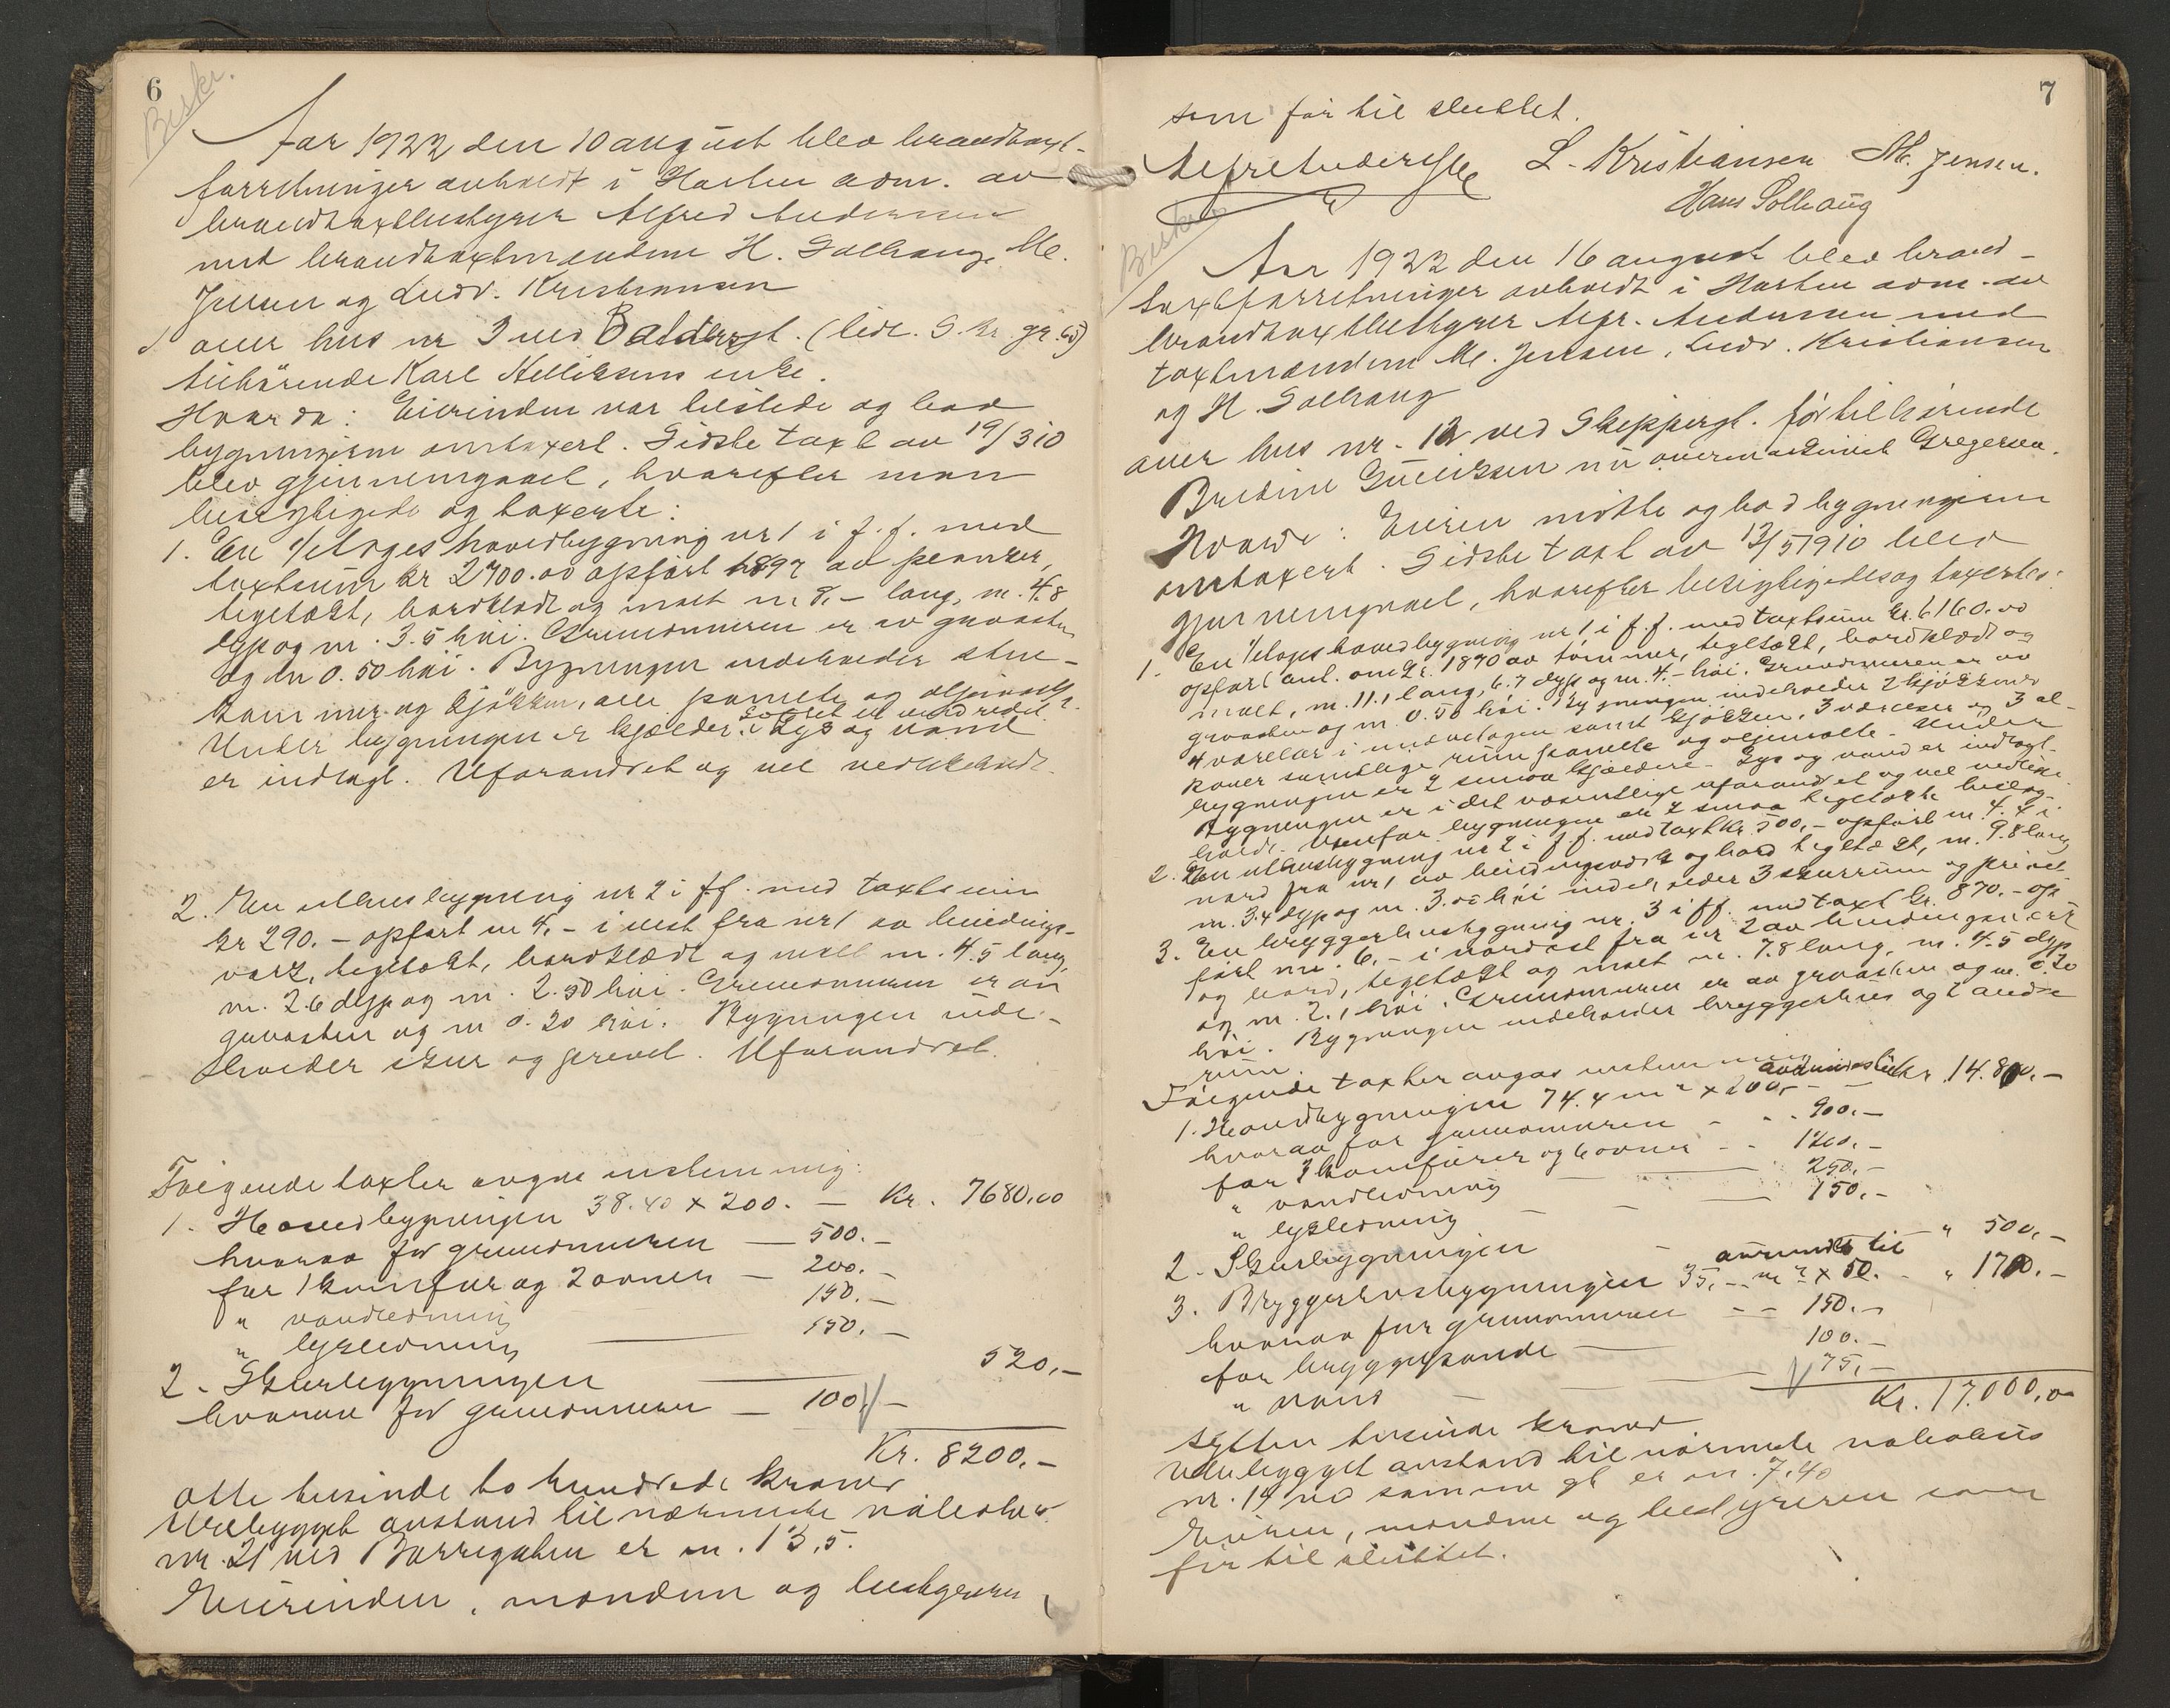 6
Beskr.
Aar 1922 den 10 august blev brandtaxt-
forretninger avholdt i Horten adm. av
brandtaxtbestyrer Alfred Andersen
med brandtaxtmændene H. Solhaug, M.
Jensen og Ludv. Kristiansen
over hus nr 3 ved Baldersgt. (lidl. S. kr. gr.)
tilhörende Karl Kittilsens enke.
Hvorda: Eierinden var tilstede og bad
bygningerne omtaxert. Sidste taxt av 19/3 10
blev gjennemgaaet, hvorefter man
besigtigede og taxerte:
1. En 1/etages hovedbygning nr 1 i f.f. med
taxtsum kr 2700.00 opfört 1897 av planker,
tegltækt, bordklædt og malt m. 8,- lang, m. 4.8
dyp og m. 3.5 höi. Grundmuren er av graasten
og m 0.50 höi. Bygningen indeholder stue-
kammer og kjökken, alle panelte og oljemalte.
Under bygningen er kjælder. Lys og vand
er indlagt. Uforandret og vel vedlikeholdt.
2. En uthusbygning nr 2 i f.f. med taxtsum
kr 290.- opfört m 4,- i vest fra nr 1 av bindings-
verk, tegltækt, bordklædt og malt m. 4.5 lang,
m. 2.6 dyp og m. 2.50 höi. Grundmuren er av
graasten og m 0.20 höi. Bygningen inde-
holder skur og privet. Uforandret.
Følgende taxter avgas enstemmig:
1. Hovedbygningen 38.40 x 200. — Kr. 7680,00
hvorav for grundmuren — 500.-
for 1 komfur og 2 ovner — 200.-
" vandledning 150.-
" lysledning — 150.-
2. Skurbygningen — 520,-
hvorav for grundmuren — 100 -
Kr. 8200.-
otte tusinde to hundrede kroner
Ubebygget avstand til nærmeste nabohus
nr. 21 ved Borregaten er m. 13,5.
Eierinden, mændene og bestyreren
7
som før til sluttet.
Alfr Andersen L. Kristiansen M. Jensen.
Hans Solhaug
Beskr.
Aar 1922 den 16 august blev brand-
taxtforretninger avholdt i Horten adm. av
brandtaxtbestyrer Alfr. Andersen med
taxtmændene M. Jensen, Ludv. Kristiansen
og H. Solhaug
over hus nr. 12 ved Skippergt. før tilhörende
Bredine Gulliksen nu overmaskinist Gregersen.
Hvorda: Eieren mötte og bad bygningerne
omtaxert. Sidste taxt av 13/5 1910 blev
gjennemgaaet, hvorefter besigtigedes og taxertes:
1. En 1/etages hovedbygning nr 1 i f.f. med taxtsum kr. 6160.00
opfört anl. omkr. 1890 av tömmer, tegltækt, bordklædt og
malt, m. 11.1 lang, 6.7 dyp og m. 4.- höi. Grundmuren er av
graasten og m. 0.50 höi. Bygningen indeholder 2 kjökkener
4 værelser i nedre etagen samt kjökken, 3 værelser og 3 al-
kover samtlige rum panelte og oljemalte. Under
bygningen er 2 smaa kjældere. Lys og vand er indlagt.
Bygningen er i det væsentlige uforandret og vel vedlike-
holdt. Utenfor bygningen er 2 smaa tegltækte bislag.
2. En uthusbygning nr 2 i f.f. med taxt kr. 500,- opfört m. 4.4 i
nord fra nr 1 av bindingsverk og bord tegltækt, m. 9.8 lang
m. 3.4 dyp og m. 3.00 höi indeholder 3 skurrum og privet.
3. En bryggerhusbygning nr. 3 i f.f. med taxt kr. 870.- op-
fört m. 6,- i nordöst fra nr 2 av bindingsverk
og bord, tegltækt og malt m. 7.8 lang, m. 4.5 dyp
og m. 2.1 höi. Grundmuren er av graasten og m. 0.20
höi. Bygningen indeholder bryggerhus og 2 andre
rum.
Følgende taxter avgas enstemmig:
1. Hovedbygningen 74.4 m² x 200,- avrundes til kr. 14.800.-
hvorav for grundmuren - - 900.-
for 2 komfurer og 6 ovner - - 1200.-
" vandledning — 250.-
" lysledning — 150.-
2. Skurbygningen - — " 500,-
3. Bryggerhusbygningen 35,- m² x 50. avrundet til " 1700.-
hvorav for grundmuren - - 150.-
for bryggepande — 100.-
" vand — 75,-
Kr. 17.000,00
sytten tusinde kroner
Ubebygget avstand til nærmeste nabohus
nr. 14 ved samme gt er m. 7.40
Eieren, mændene og bestyreren som
før til sluttet.